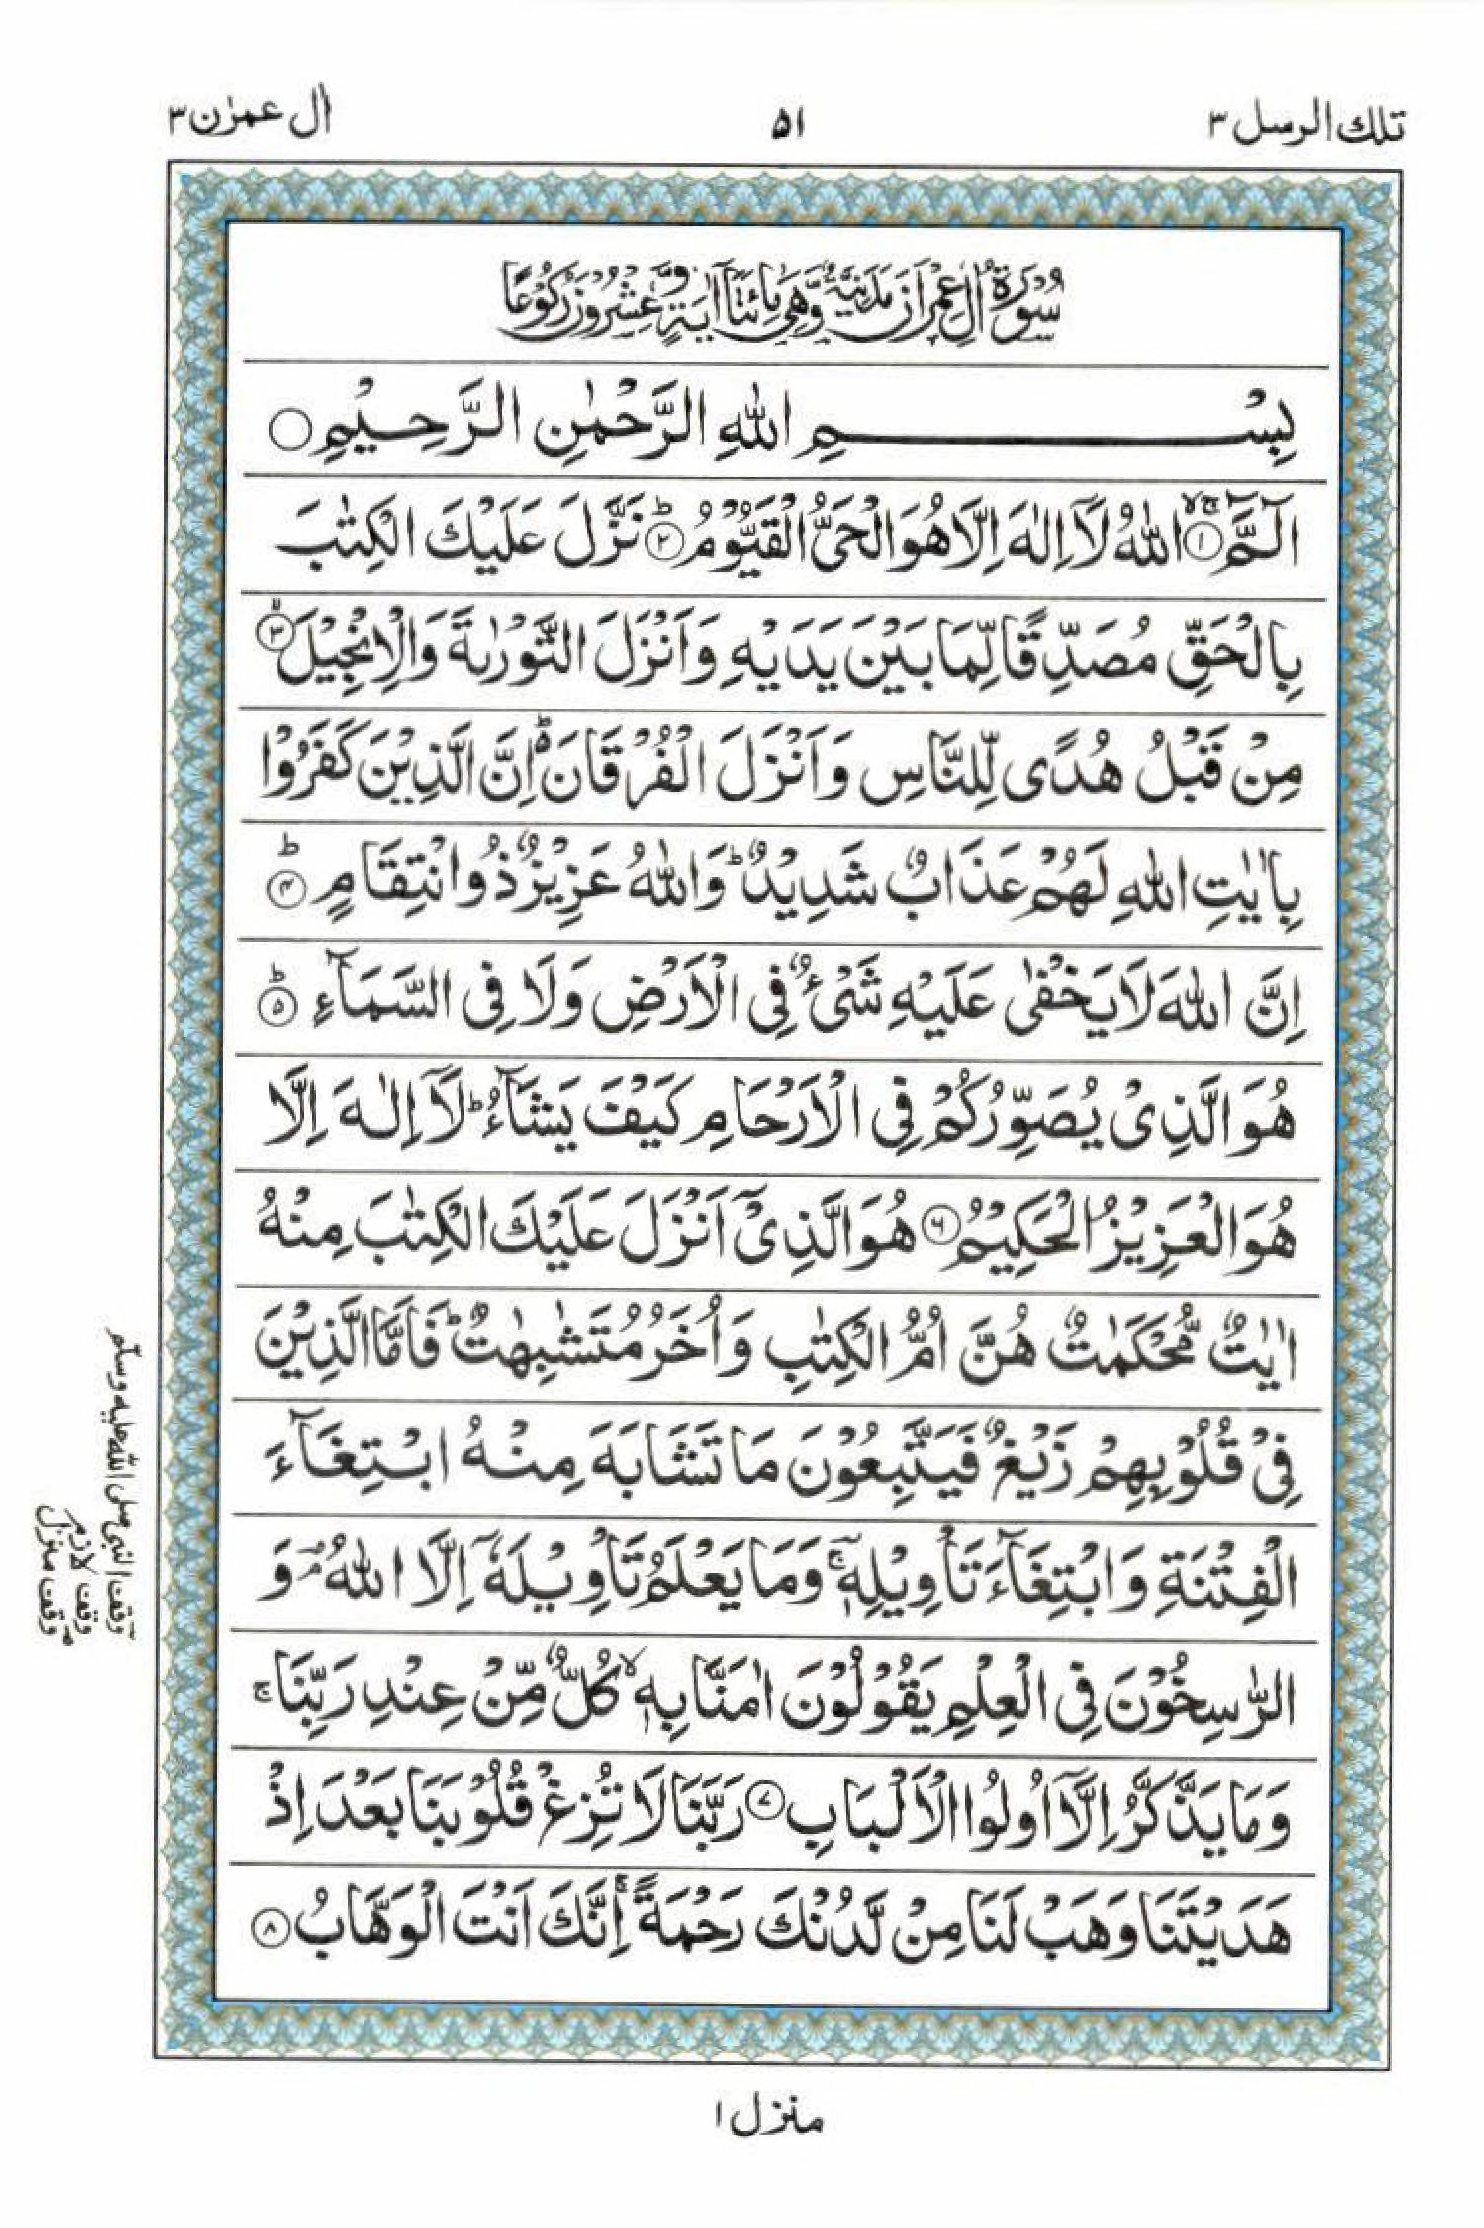 تلك الرسل ٣
٥١
اٰل عمرٰن ٣
سُوْرَةُ اٰلِ عِمْرَانَ مَدَنِيَّةٌ وَّهِيَ مِائَتَا اٰيَةٍ وَّعِشْرُوْنَ رُكُوْعًا
بِسْــــــــمِ اللّٰهِ الرَّحْمٰنِ الرَّحِيْمِ ○
الٓمَّٓ ۙۚ﴿۱﴾ اللّٰهُ لَاۤ اِلٰهَ اِلَّا هُوَ الْحَيُّ الْقَيُّوْمُ ؕ﴿۲﴾ نَزَّلَ عَلَيْكَ الْكِتٰبَ
بِالْحَقِّ مُصَدِّقًا لِّمَا بَيْنَ يَدَيْهِ وَاَنْزَلَ التَّوْرٰىةَ وَالْاِنْجِيْلَ ۙ﴿۳﴾
مِنْ قَبْلُ هُدًى لِّلنَّاسِ وَاَنْزَلَ الْفُرْقَانَ ۬ؕ اِنَّ الَّذِيْنَ كَفَرُوْا
بِاٰيٰتِ اللّٰهِ لَهُمْ عَذَابٌ شَدِيْدٌ ؕ وَاللّٰهُ عَزِيْزٌ ذُو انْتِقَامٍ ؕ﴿۴﴾
اِنَّ اللّٰهَ لَا يَخْفٰى عَلَيْهِ شَيْءٌ فِي الْاَرْضِ وَلَا فِي السَّمَآءِ ؕ﴿۵﴾
هُوَ الَّذِيْ يُصَوِّرُكُمْ فِي الْاَرْحَامِ كَيْفَ يَشَآءُ ؕ لَاۤ اِلٰهَ اِلَّا
هُوَ الْعَزِيْزُ الْحَكِيْمُ ﴿۶﴾ هُوَ الَّذِيْۤ اَنْزَلَ عَلَيْكَ الْكِتٰبَ مِنْهُ
اٰيٰتٌ مُّحْكَمٰتٌ هُنَّ اُمُّ الْكِتٰبِ وَاُخَرُ مُتَشٰبِهٰتٌ ؕ فَاَمَّا الَّذِيْنَ
فِيْ قُلُوْبِهِمْ زَيْغٌ فَيَتَّبِعُوْنَ مَا تَشَابَهَ مِنْهُ ابْتِغَآءَ
الْفِتْنَةِ وَابْتِغَآءَ تَاْوِيْلِهٖ ۚ وَمَا يَعْلَمُ تَاْوِيْلَهٗۤ اِلَّا اللّٰهُ ۘ وَ
الرّٰسِخُوْنَ فِي الْعِلْمِ يَقُوْلُوْنَ اٰمَنَّا بِهٖ ۙ كُلٌّ مِّنْ عِنْدِ رَبِّنَا ۚ
وَمَا يَذَّكَّرُ اِلَّاۤ اُولُوا الْاَلْبَابِ ﴿۷﴾ رَبَّنَا لَا تُزِغْ قُلُوْبَنَا بَعْدَ اِذْ
هَدَيْتَنَا وَهَبْ لَنَا مِنْ لَّدُنْكَ رَحْمَةً ۚ اِنَّكَ اَنْتَ الْوَهَّابُ ﴿۸﴾
وقف النبى صلى الله عليه وسلم
وقف لازم
وقف منزل
منزل ١